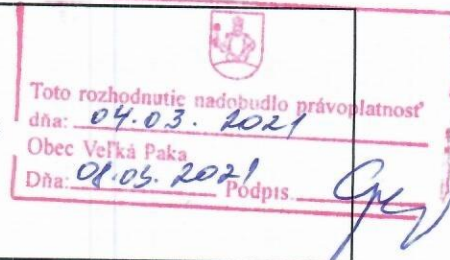 Toto rozhodnutie nadobudlo právoplatnosť
dňa: 04.03. 2021
Obec Veľká Paka
Dňa: 08.03. 2021 Podpis